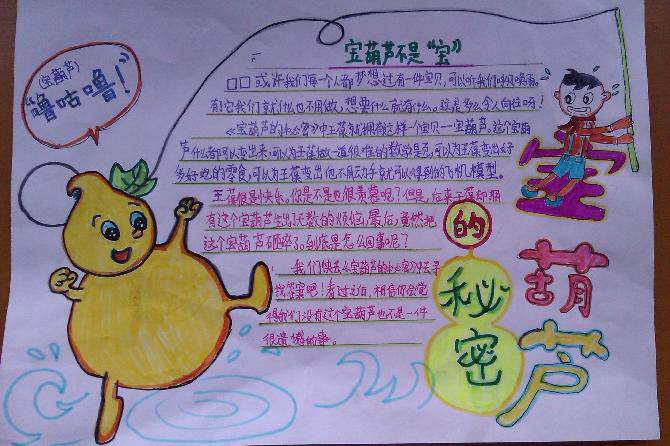 宝葫芦不是"宝"
(宝葫芦)
"噜咕噜!"
□□或许我们每一个人都梦想过有一件宝贝,可以听我们呼风唤雨。
有它我们就什么也不用做,想要什么就有什么。这是多么令人向往呀!
《宝葫芦的秘密》中王葆就拥有这样一个宝贝——宝葫芦。这个宝葫
芦什么都可以变出来,可以为王葆做一道很难的数学题,可以为王葆变出好
多好吃的零食,可以为王葆变出他不用动手就可以得到的飞机模型。
王葆很是快乐。你是不是也很羡慕呢?但是,后来王葆却拥
有这个宝葫芦生出了无数的烦恼,最后,竟然把
这个宝葫芦砸碎了。到底是怎么回事呢?
我们快去《宝葫芦的秘密》中去寻
找答案吧!看过之后,相信你会觉
得我们没有这个宝葫芦也不是一件
很遗憾的事。
宝
葫
芦
的
秘
密